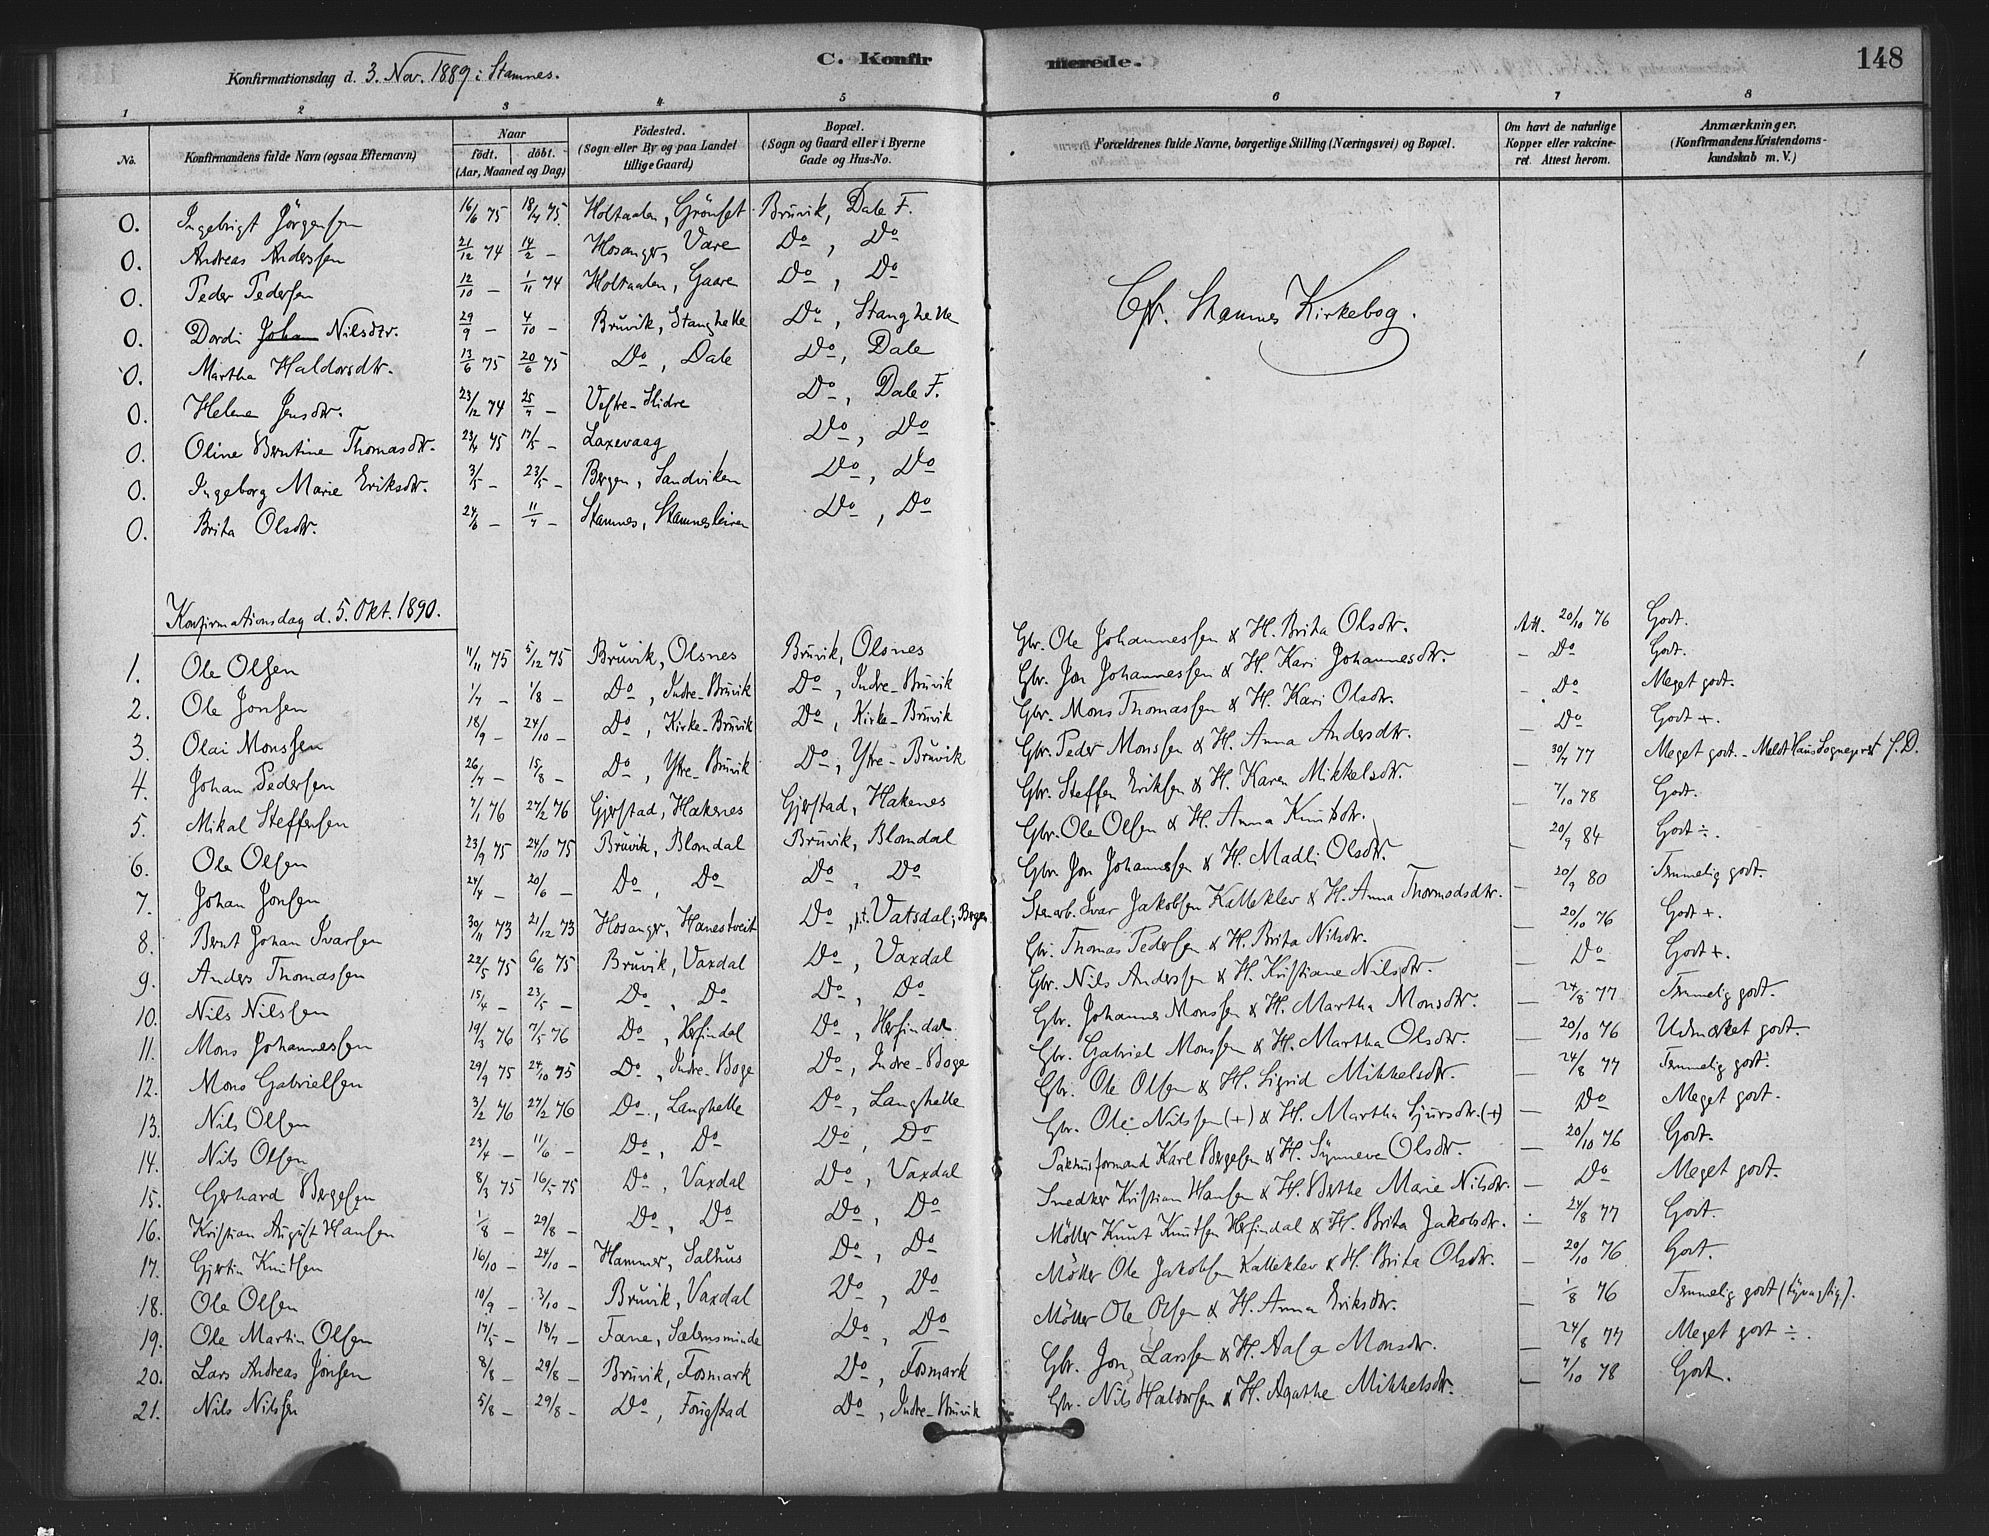 Konfirmationsdag d. 3. Nov. 1889 i Stamnes.
C. Konfirmerede.
148
1 2 3 4 5 6 7 8
No. | Konfirmandens fulde Navn (ogsaa Efternavn) | Naar födt. döbt. (Aar, Maaned og Dag) | Födested. (Sogn eller By og paa Landet tillige Gaard) | Bopæl. (Sogn og Gaard eller i Byerne Gade og Hus-No. | Forældrenes fulde Navne, borgerlige Stilling (Næringsvei) og Bopæl. | Om havt de naturlige Kopper eller vakcineret. Attest herom. | Anmærkninger. (Konfirmandens Kristendomskundskab m. V.)
0. Ingebrigt Jörgensen 16/6 75 18/7 75 Holtaalen, Grönset Bruvik, Dale F.
0. Andreas Anderssen 21/12 74 14/2 — Hosanger, Vare Do, Do
0. Peder Pedersen 12/10 — 1/11 74 Holtaalen, Gaare Do, Do
Cfr. Stamnes Kirkebog.
0. Dordi Johan Nilsdtr. 29/9 — 4/10 — Bruvik, Stanghelle Do, Stanghelle
0. Martha Haldorsdtr. 13/6 75 20/6 75 Do, Dale Do, Dale
0. Helene Jensdtr. 23/12 74 25/7 — Vestre-Slidre Do, Dale F.
0. Oline Berntine Thomasdtr. 23/4 75 17/5 — Laxevaag Do, Do
0. Ingeborg Marie Eriksdtr. 3/5 — 23/5 — Bergen, Sandviken Do, Do
0. Brita Olsdtr. 24/6 — 11/7 — Stamnes, Stamnesleiren Do, Do
Konfirmationsdag d. 5. Okt. 1890.
1. Ole Olsen 11/11 75 5/12 75 Bruvik, Olsnes Bruvik, Olsnes Gbr. Ole Johannessen & H. Brita Olsdtr. Att. 20/10 76 Godt.
2. Ole Jonsen 1/7 — 1/8 — Do, Indre-Bruvik Do, Indre-Bruvik Gbr. Jon Johannessen & H. Kari Johannesdtr. — Do Godt.
3. Olai Monssen 18/9 — 24/10 — Do, Kirke-Bruvik Do, Kirke-Bruvik Gbr. Mons Thomassen & H. Kari Olsdtr. — Do Meget godt.
4. Johan Pedersen 26/7 — 15/8 — Do, Ytre-Bruvik Do, Ytre-Bruvik Gbr. Peder Monssen & H. Anna Andersdtr. — Do Godt +.
5. Mikal Steffensen 7/1 76 27/2 76 Gjerstad, Hakenes Gjerstad, Hakenes Gbr. Steffen Eriksen & H. Karen Mikkelsdtr. — 30/7 77 Meget godt. - Meldt Haus Sogneprest S. D.
6. Ole Olsen 23/9 75 24/10 75 Bruvik, Blomdal Bruvik, Blomdal Gbr. Ole Olsen & H. Anna Knutsdtr. — 7/10 78 Godt.
7. Johan Jonsen 24/4 — 20/6 — Do, Do Do, Do Gbr. Jon Johannessen & H. Madli Olsdtr. — 20/9 84 Godt ÷.
8. Bernt Johan Ivarsen 30/11 73 21/12 73 Hosanger, Hanestveit Do, p.t. Vatsdal, Bergen Stenarb. Ivar Jakobsen Kalleklev & H. Anna Thormodsdtr. — 20/9 80 Temmelig godt.
9. Anders Thomassen 22/5 75 6/6 75 Bruvik, Vaxdal Do, Vaxdal Gbr. Thomas Pedersen & H. Brita Nilsdtr. — 20/10 76 Godt +.
10. Nils Nilssen 15/4 — 23/5 — Do, Do Do, Do Gbr. Nils Anderssen & H. Kristiane Nilsdtr. — Do Godt +.
11. Mons Johannessen 19/3 76 7/5 76 Do, Herfindal Do, Herfindal Gbr. Johannes Monssen & H. Martha Monsdtr. — 24/8 77 Temmelig godt.
12. Mons Gabrielsen 29/9 75 24/10 75 Do, Indre-Boge Do, Indre-Boge Gbr. Gabriel Monssen & H. Martha Olsdtr. — 20/10 76 Udmærket godt.
13. Nils Olsen 3/2 76 27/2 76 Do, Langhelle Do, Langhelle Gbr. Ole Olsen & H. Sigrid Mikkelsdtr. — 24/8 77 Temmelig godt.
14. Nils Olsen 23/4 — 11/6 — Do, Do Do, Do Gbr. Ole Nilssen (+) & H. Martha Sjursdtr. (+) — Do Meget godt.
15. Gerhard Bergesen 8/3 75 16/5 75 Do, Vaxdal Do, Vaxdal Pakhusformand Karl Bergesen & H. Synneva Olsdtr. — 20/10 76 Godt.
16. Kristian August Hansen 1/8 — 29/8 — Do, Do Do, Do Snedker Kristian Hansen & H. Berthe Marie Nilsdtr. — Do Meget godt.
17. Gjertin Knutsen 16/10 — 24/10 — Hammer, Salhus Do, Do Möller Knut Knutsen Herfindal & H. Brita Jakobsdtr. — 24/8 77 Godt.
18. Ole Olsen 10/9 — 3/10 — Bruvik, Vaxdal Do, Do Möller Ole Jakobsen Kalleklev & H. Brita Olsdtr. — 20/10 76 Godt.
19. Ole Martin Olsen 17/5 — 18/7 — Fane, Sælensminde Do, Do Möller Ole Olsen & H. Anna Eriksdtr. — 1/8 76 Temmelig godt
20. Lars Andreas Jonsen 8/8 — 29/8 — Bruvik, Fosmark Do, Fosmark Gbr. Jon Larssen & H. Aasa Monsdtr. — 24/8 77 Meget godt ÷.
21. Nils Nilssen 5/8 — 29/8 — Do, Fougstad Do, Indre-Bruvik Gbr. Nils Haldorsen & H. Agathe Mikkelsdtr. — 7/10 78 Godt.